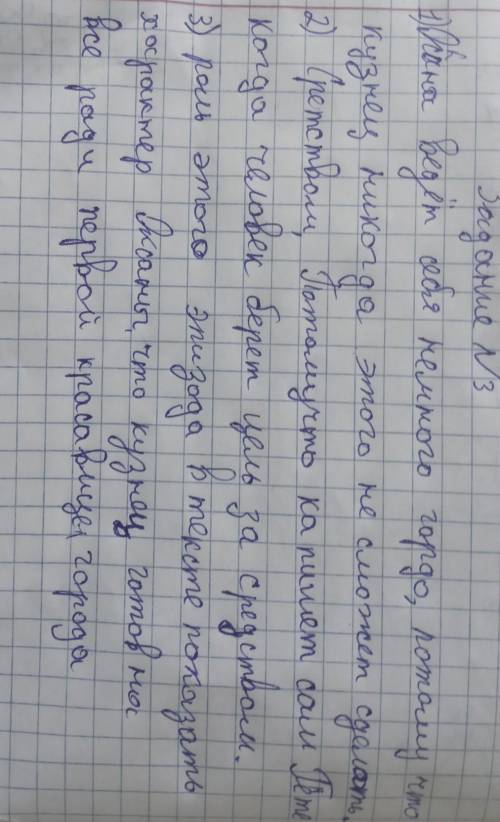 Задание №3
1) Она ведёт себя немного гордо, потому что
кузнец никогда этого не сможет сделать.
2) Средством, Потомучто ка пишет сам Гёте
когда человек берет цель за средством.
3) роль этого эпизода в тексте показать
характер Оксаны, что кузнец готов на
все ради первой красавице города